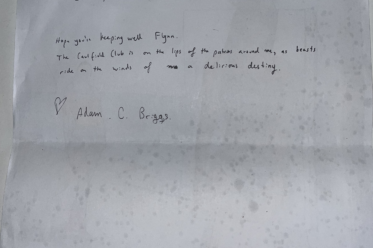 Hope you're keeping well Flynn.
The Caulfield Club is on the lips of the around me, as beasts
ride on the winds of a delirious destiny.
Adam. C. Briggs.